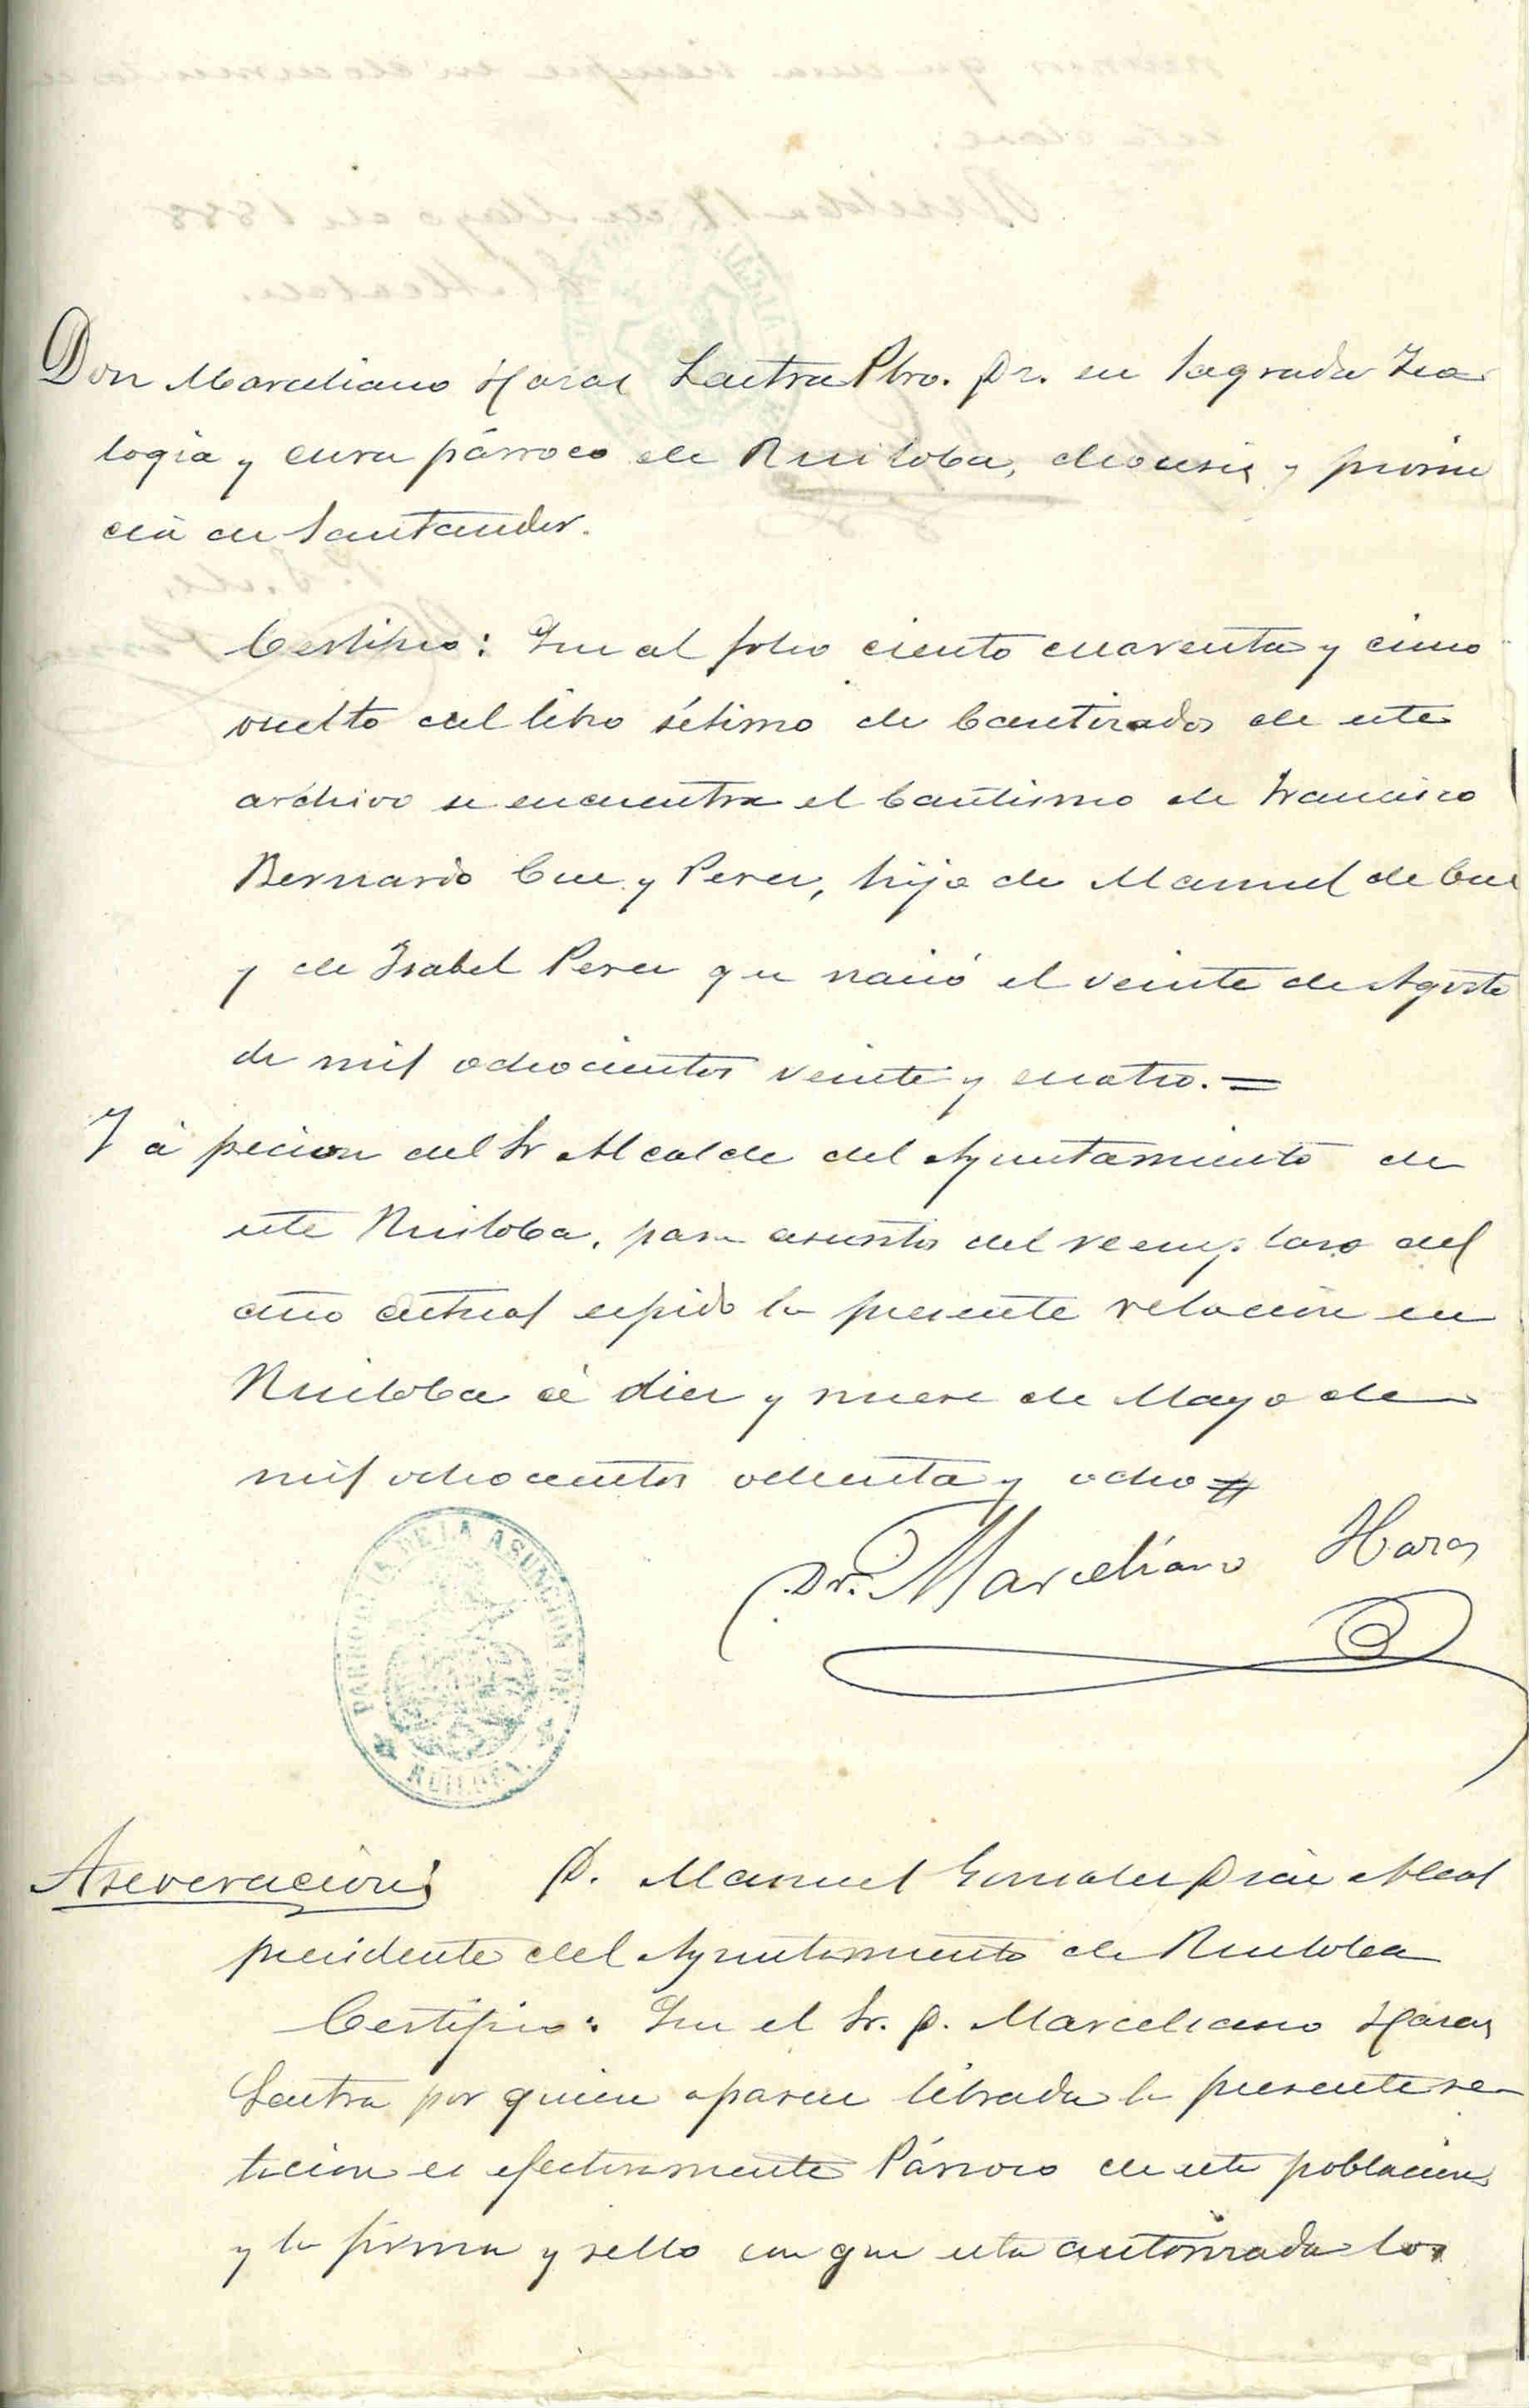 Don Marceliano Haras Lastra Pbro. Dr. en Sagrada Teo
logia y cura párroco de Ruiloba, diocesis y provin
cia de Santander.
Certifico: Que al folio ciento cuarenta y cinco
vuelto del libro sétimo de bautizados de este
archivo se encuentra el bautismo de Francisco
Bernardo Cue y Perez, hijo de Manuel de Cue
y de Isabel Perez que nació el veinte de Agosto
de mil ochocientos veinte y cuatro. =
Y á peticion del Sr Alcalde del Ayuntamiento de
este Ruiloba, para asuntos del reemplazo del
año actual espido la presente relacion en
Ruiloba á diez y nueve de Mayo de
mil ochocientos ochenta y ocho =
Dr. Marceliano Haras
PARROQUIA DE LA ASUNCION DE
RUILOBA
Aseveracion D. Manuel Gonzalez Diaz Alcal
presidente del Ayuntamiento de Ruiloba
Certifico: Que el Sr. D. Marceliano Haras
Lastra por quien aparece librada la presente re
lacion es efectivamente Párroco de esta poblacion
y la firma y sello con que esta autorizada los